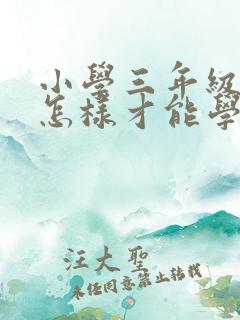 小學三年級
怎樣才能學
汪大聖
未經同意禁止轉載